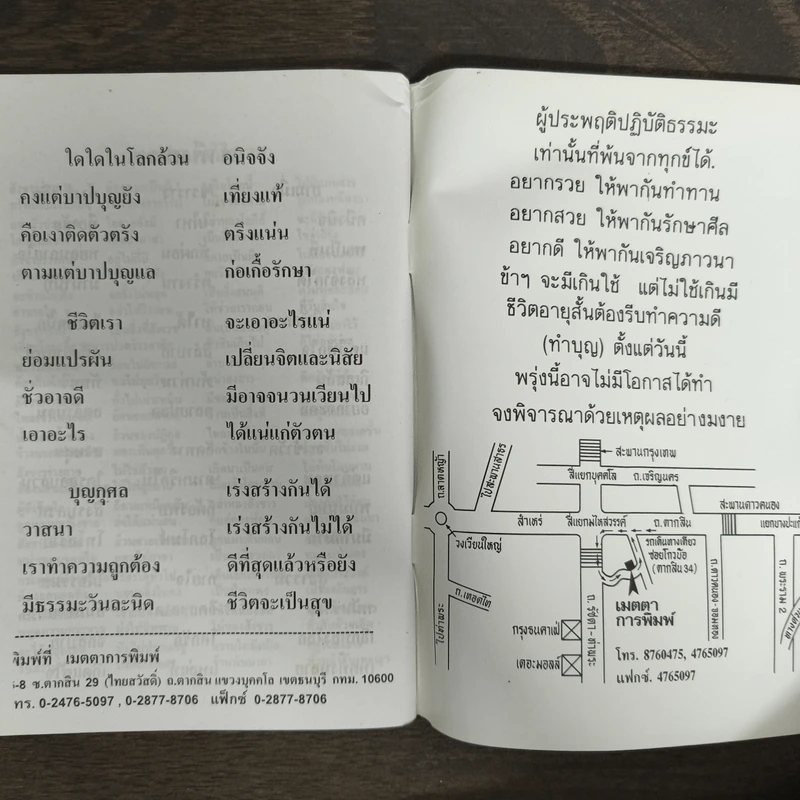 ใดใดในโลกล้วน อนิจจัง
คงแต่บาปบุญยัง เที่ยงแท้
คือเงาติดตัวตรัง ตรึงแน่น
ตามแต่บาปบุญแล ก่อเกื้อรักษา
ชีวิตเรา จะเอาอะไรแน่
ย่อมแปรผัน เปลี่ยนจิตและนิสัย
ชั่วอาจดี มีอาจจนวนเวียนไป
เอาอะไร ได้แน่แก่ตัวตน
บุญกุศล เร่งสร้างกันได้
วาสนา เร่งสร้างกันไม่ได้
เราทำความถูกต้อง ดีที่สุดแล้วหรือยัง
มีธรรมะวันละนิด ชีวิตจะเป็นสุข
พิมพ์ที่ เมตตาการพิมพ์
-8 ซ.ตากสิน 29 (ไทยสวัสดิ์) ถ.ตากสิน แขวงบุคคโล เขตธนบุรี กทม. 10600
ทร. 0-2476-5097 , 0-2877-8706 แฟ็กซ์ 0-2877-8706
ผู้ประพฤติปฏิบัติธรรมะ
เท่านั้นที่พ้นจากทุกข์ได้.
อยากรวย ให้พากันทำทาน
อยากสวย ให้พากันรักษาศีล
อยากดี ให้พากันเจริญภาวนา
ข้าฯ จะมีเกินใช้ แต่ไม่ใช้เกินมี
ชีวิตอายุสั้นต้องรีบทำความดี
(ทำบุญ) ตั้งแต่วันนี้
พรุ่งนี้อาจไม่มีโอกาสได้ทำ
จงพิจารณาด้วยเหตุผลอย่างมงาย
สะพานกรุงเทพ
ถ.ลาดหญ้า
ไปสะพานสาธร
สี่แยกบุคคโล ถ.เจริญนคร
สะพานดาวคนอง
สำเหร่ สี่แยกมไหสวรรค์ ถ.ตากสิน
แยกบางปะแก้
วงเวียนใหญ่
รถเดินทางเดียว
ซอยโกวบ๊อ
(ตากสิน 34)
ถ.เทอดไท
ไปท่าพระ
ถ.รัชดา-ท่าพระ
ถ.ดาวคนอง-จอมทอง
ถ.พระราม 2
เมตตา
การพิมพ์
กรุงธนคาเฟ่
เดอะมอลล์
โทร. 8760475, 4765097
แฟกซ์. 4765097